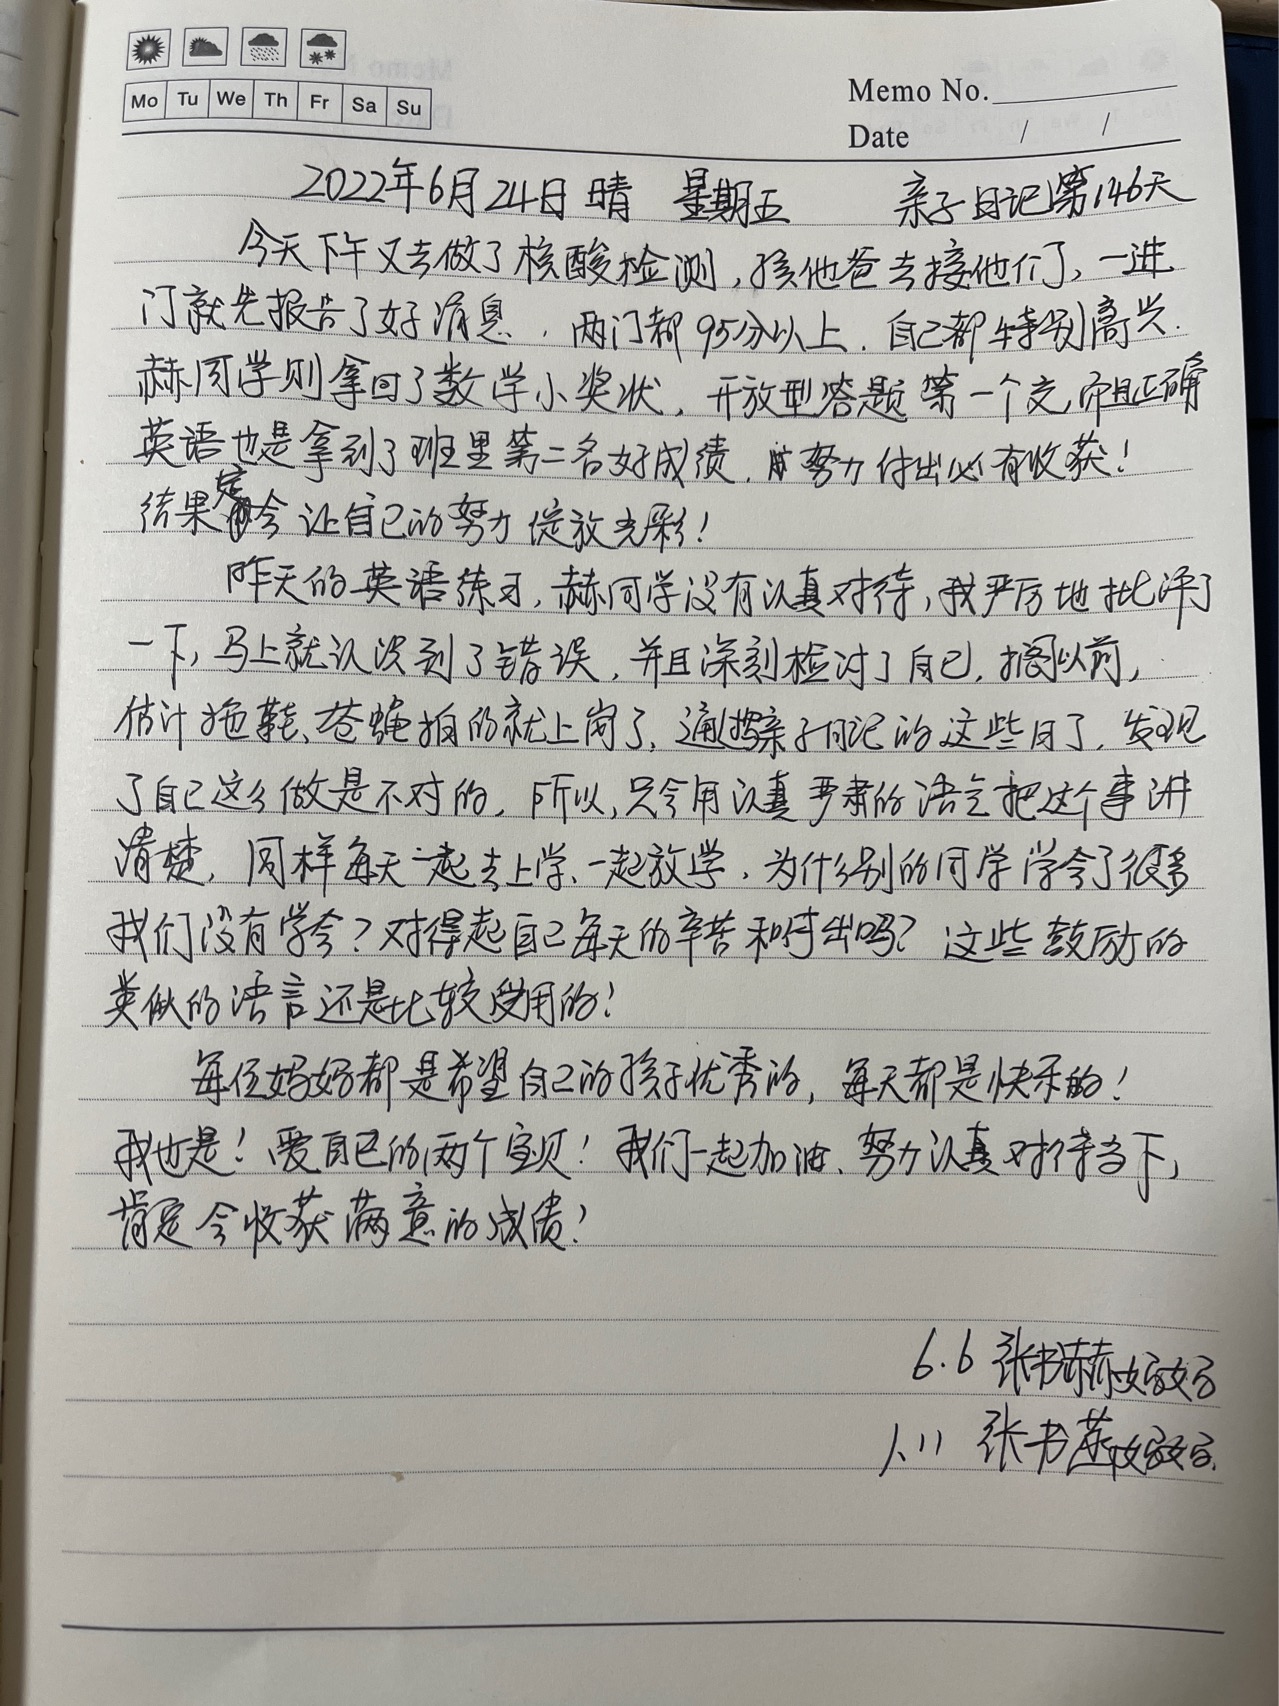 Mo Tu We Th Fr Sa Su
Memo No.
Date / /
2022年6月24日 晴 星期五 亲子日记第146天
今天下午又去做了核酸检测,孩他爸去接他们了,一进
门就先报告了好消息,两门都95分以上.自己都特别高兴.
赫同学则拿回了数学小奖状,开放型答题第一个交,而且正确
英语也是拿到了班里第二名好成绩,努力付出必有收获!
结果定会让自己的努力绽放光彩!
昨天的英语练习,赫同学没有认真对待,我严厉地批评了
一下,马上就认识到了错误,并且深刻检讨了自己,搁以前,
估计拖鞋、苍蝇拍的就上岗了,通过写亲子日记的这些日了,发现
了自己这么做是不对的,所以,只会用认真严肃的语气把这个事讲
清楚,同样每天一起去上学、一起放学,为什么别的同学学会了很多
我们没有学会?对得起自己每天的辛苦和付出吗?这些鼓励的
类似的语言还是比较受用的!
每位妈妈都是希望自己的孩子优秀的,每天都是快乐的!
我也是!爱自己的两个宝贝!我们一起加油、努力认真对待当下,
肯定会收获满意的成绩!
6.6 张书赫妈妈
1.11 张书妈妈